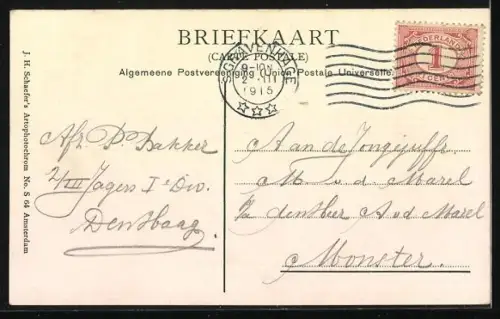 BRIEFKAART
(CARTE POSTALE)
Algemeene Postvereeniging (Union Postale Universelle)
'S GRAVENHAGE
2 III
1915
NEDERLAND
1
CENT
J. H. Schaefer's Artophotochrom No. S 64 Amsterdam
Afz. D. Bakker
2/III Jagers I° Div.
Den Haag
Aan de Jongejuffr.
M. v. d. Marel
p/a den Heer A v d Marel
Monster